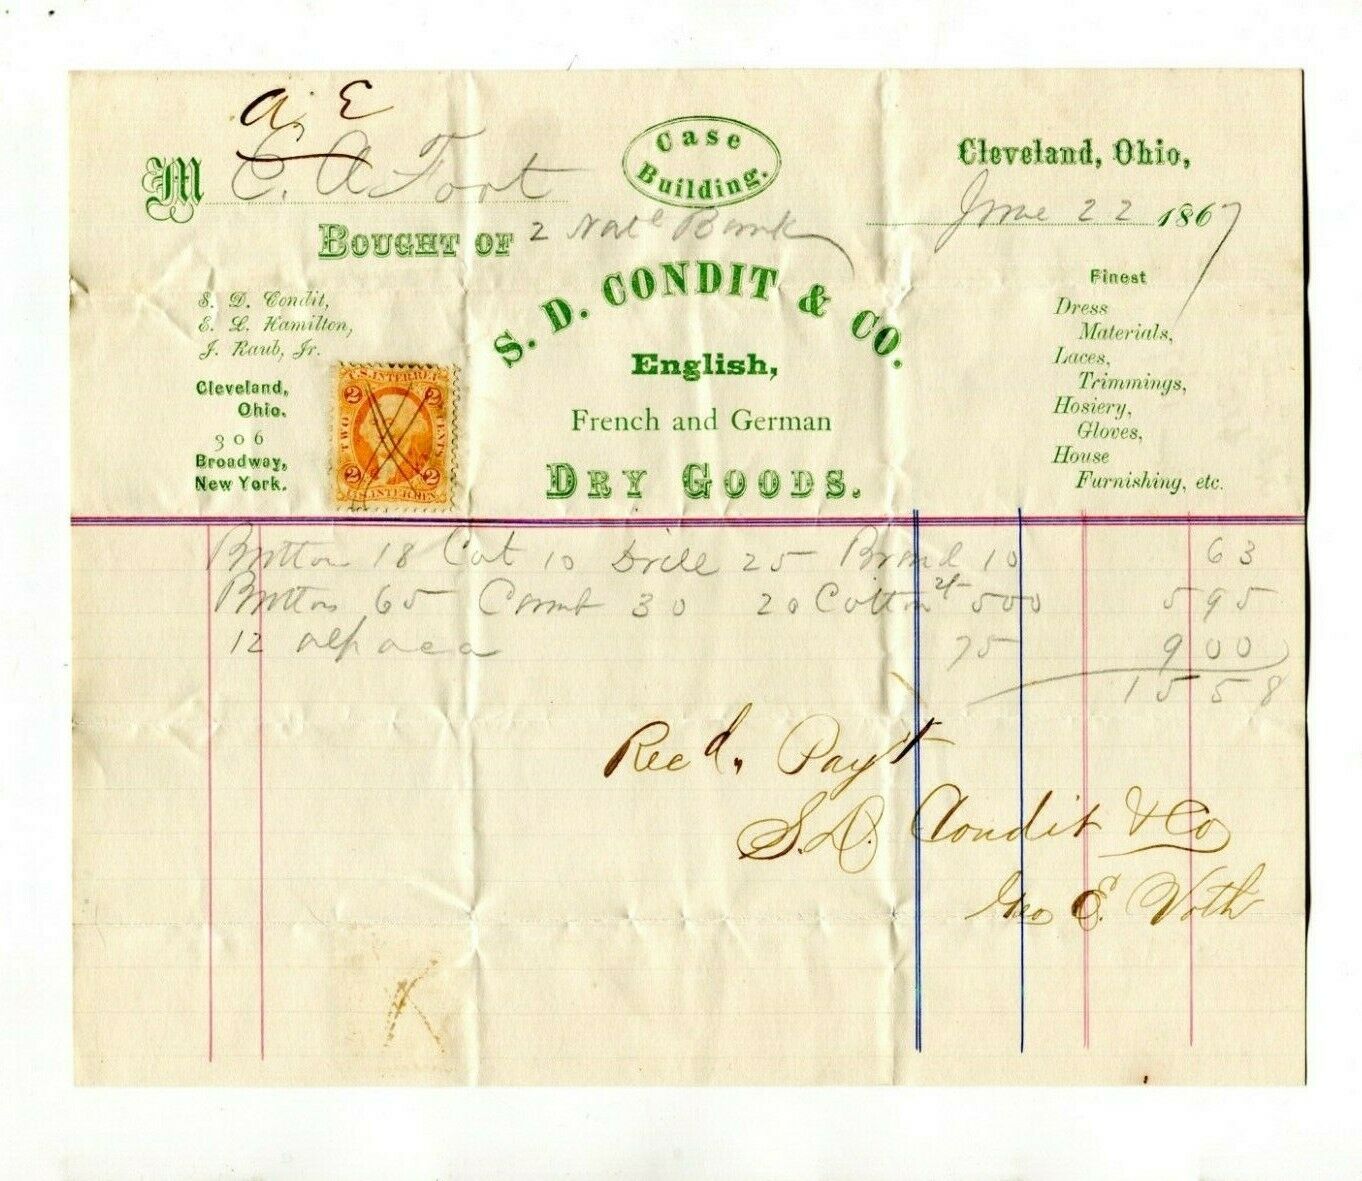 A. E
M C. A Foot
Case
Building.
Cleveland, Ohio,
June 22 1867
BOUGHT OF 2 Natl Bank
S. D. CONDIT & CO.
English,
French and German
DRY GOODS.
S. D. Condit,
E. L. Hamilton,
J. Raub, Jr.
Cleveland,
Ohio.
306
Broadway,
New York.
U.S. INTER. REV.
2 2
TWO CENTS
2 2
U.S. INTER. REV.
Finest
Dress
Materials,
Laces,
Trimmings,
Hosiery,
Gloves,
House
Furnishing, etc.
Button 18 Cot 10 Drill 25 Braid 10 63
Buttons 65 Comb 30 20 Cotton 2/- 500 595
12 alpaca 75 900
1558
Recd, Payt
S. D. Condit & Co
Geo E. Voth